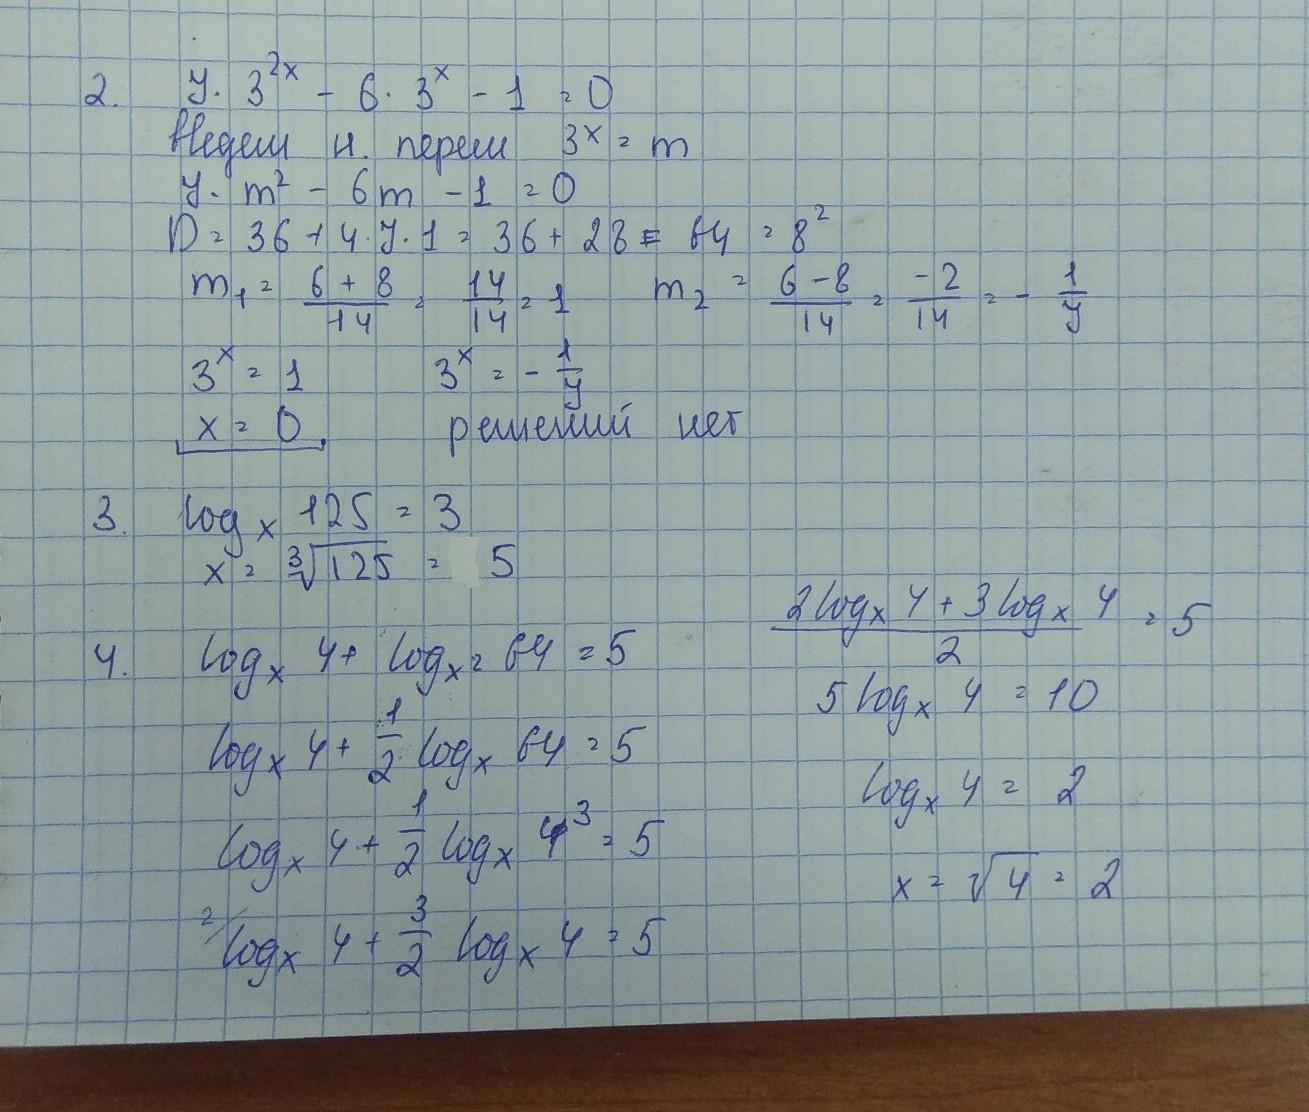 2. 7·3²ˣ - 6·3ˣ - 1 = 0
Введем н. перем 3ˣ = m
7·m² - 6m - 1 = 0
D = 36 + 4·7·1 = 36 + 28 = 64 = 8²
m₁ = (6 + 8)/14 = 14/14 = 1 m₂ = (6 - 8)/14 = -2/14 = - 1/7
3ˣ = 1 3ˣ = - 1/7
x = 0. решений нет
3. logₓ 125 = 3
x = ∛125 = 5
4. logₓ 4 + logₓ² 64 = 5
logₓ 4 + 1/2 logₓ 64 = 5
logₓ 4 + 1/2 logₓ 4³ = 5
2/ logₓ 4 + 3/2 logₓ 4 = 5
(2 logₓ 4 + 3 logₓ 4)/2 = 5
5 logₓ 4 = 10
logₓ 4 = 2
x = √4 = 2